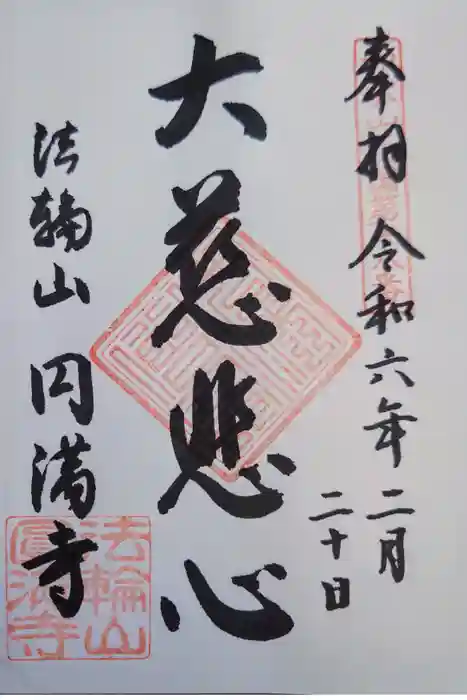 奉拝 令和六年二月
二十日
大慈悲心
法輪山 円満寺
法輪山
圓満寺